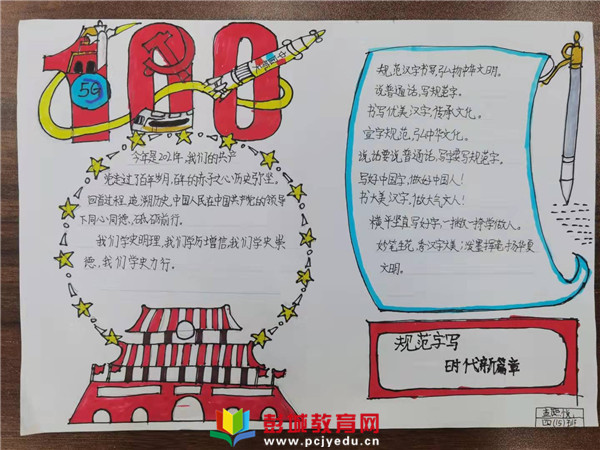 100
5G
今年是2021年,我们的共产
党走过了百年岁月,百年的赤子文心历史引望。
回首过程,追溯历史,中国人民在中国共产党的领导
下同心同德、砥砺前行。
我们学史明理,我们学历增信,我们学史崇
德,我们学史力行。
规范汉字书写,弘扬中华文明。
说普通话,写规范字。
书写优美汉字,传承文化。
宣字规范,弘中华文化。
说话要说普通话,写字要写规范字。
写好中国字,做好中国人!
书大美汉字,做大气文人!
横平竖直写好字,一撇一捺学做人。
妙笔生花,看汉字大美;泼墨挥毫,扬华夏
文明。
规范字写
时代新篇章
四(15)
彭城教育网
www.pcjyedu.cn